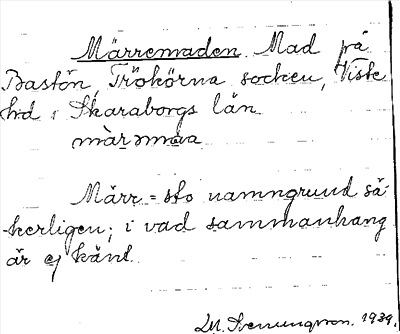 Märremaden. Mad på
Bastön, Trökörna socken, Viste
hd i Skaraborgs län.
màrəmáa
Märr = sto namngrund sä-
kerligen; i vad sammanhang
är ej känt.
1939.